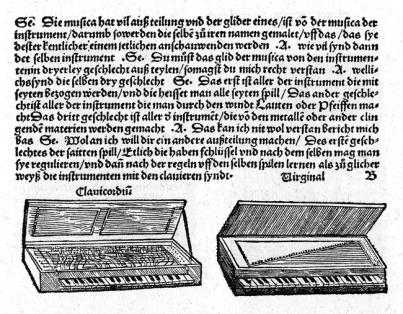 Se. Die musica hat vil auß teilung vnd der glider eines/ist võ der musica der
instrument/darumb so werden die selbē zů iren namen gemalet/vff das/das sy
dester kentlicher einem jetlichen anschauwenden werden ·A· wie vil synd dann
der selben instrument ·Se· Du můst das glid der musica von den instrumen-
ten in dryerley geschlecht auß teylen/so magstu du mich recht verstan ·A· welli-
ches synd die selben dry geschlecht Se· Das erst ist aller der instrument die mit
seyten bezogen werden/vnd die heisset man alle seyten spil/Das ander geschle-
cht ist aller der instrument die man durch den windt Lauten oder Pfeiffen ma-
cht Das drit geschlecht ist aller d' instrumēt/die võ den metallē oder ander clin
gendē materien werden gemacht ·A· Das kan ich nit wol verstan bericht mich
bas Se· Wolan ich will dir ein andere außteilung machen/ Des erstē gesch-
lechtes der saitten spill/Etlich die haben schlüssel vnd nach dem selben mag man
sye regulieren/vnd dañ nach der regeln vff den selben spilen lernen als zů glicher
weyß die instrumenten mit den clauieren syndt·
Virginal B
Clauicordiū